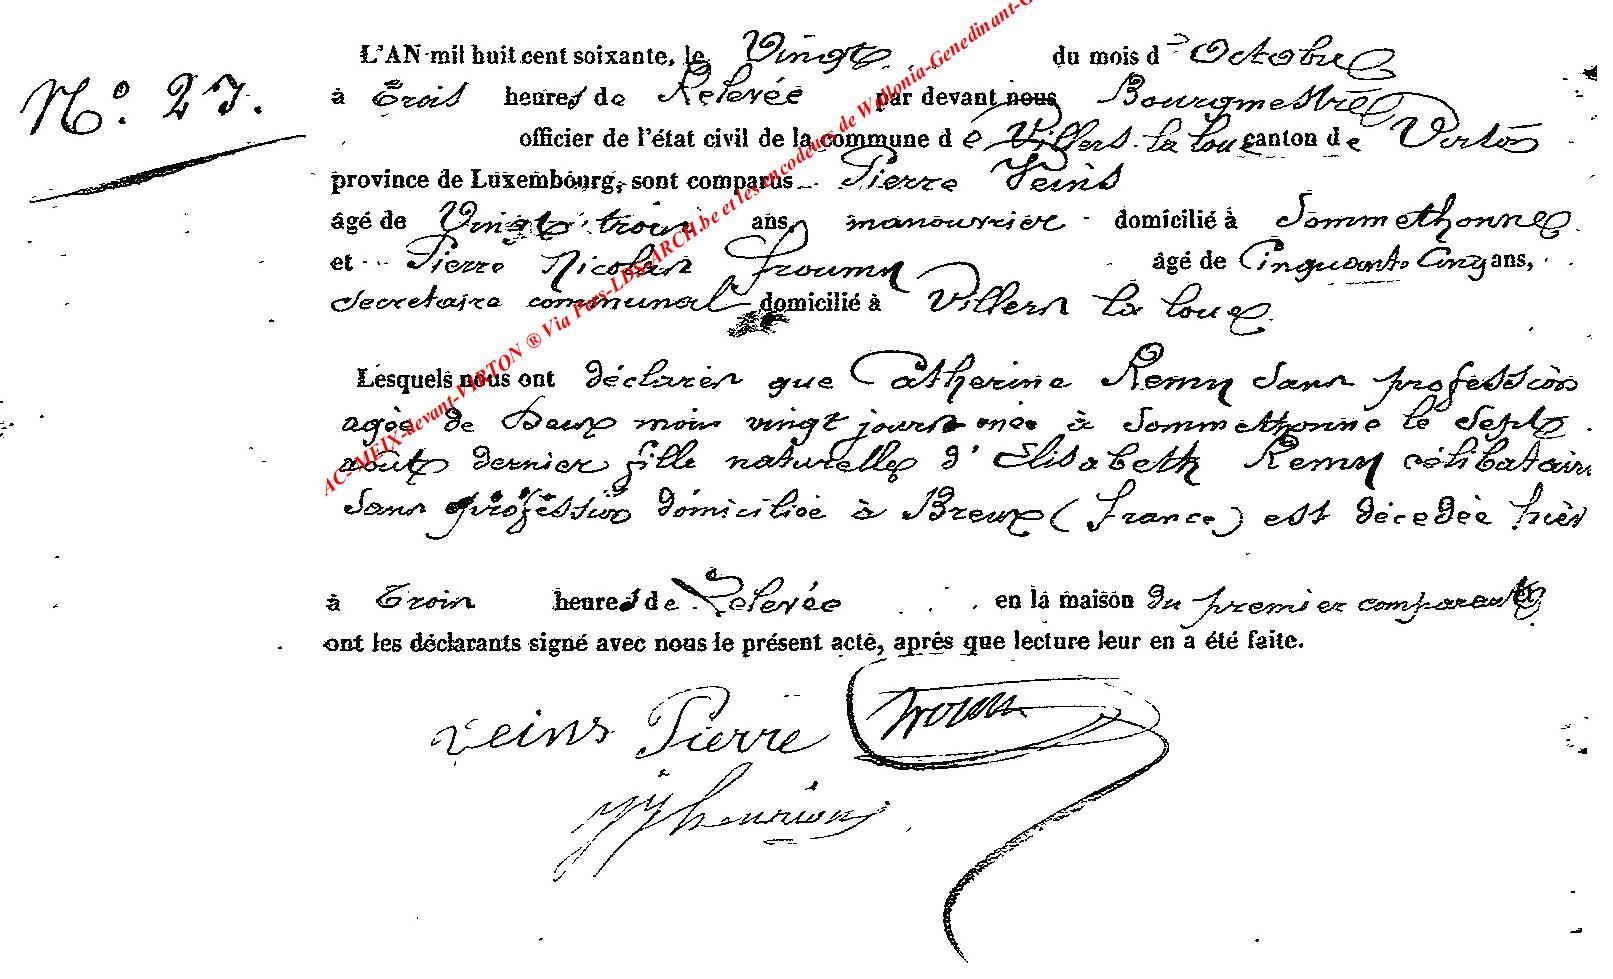 L'AN mil huit cent soixante, le Vingt du mois d' Octobre
N° 27.
à trois heures de Relevée par devant nous Bourgmestre
officier de l'état civil de la commune de Villers la loue canton de Virton
province de Luxembourg, sont comparus Pierre Veins
âgé de Vingt trois ans, manouvrier domicilié à Sommethonne
et Pierre Nicolas Froumy âgé de Cinquante Cinq ans,
secretaire communal domicilié à Villers la loue.
Lesquels nous ont déclarés que Catherine Remy sans profession
agée de Deux mois vingt jours née à Sommethonne le sept
août dernier fille naturelle d'Elisabeth Remy célibataire
sans profession domiciliée à Breux (france) est décedée hier
à trois heures de Relevée en la maison du premier comparant
ont les déclarants signé avec nous le présent acte, après que lecture leur en a été faite.
Veins Pierre
JJ henrion
AC-MEIX-devant-VIRTON ® Via Pars-LDS-ARCH.be et les encodeurs de Wallonia-Genedinant-G